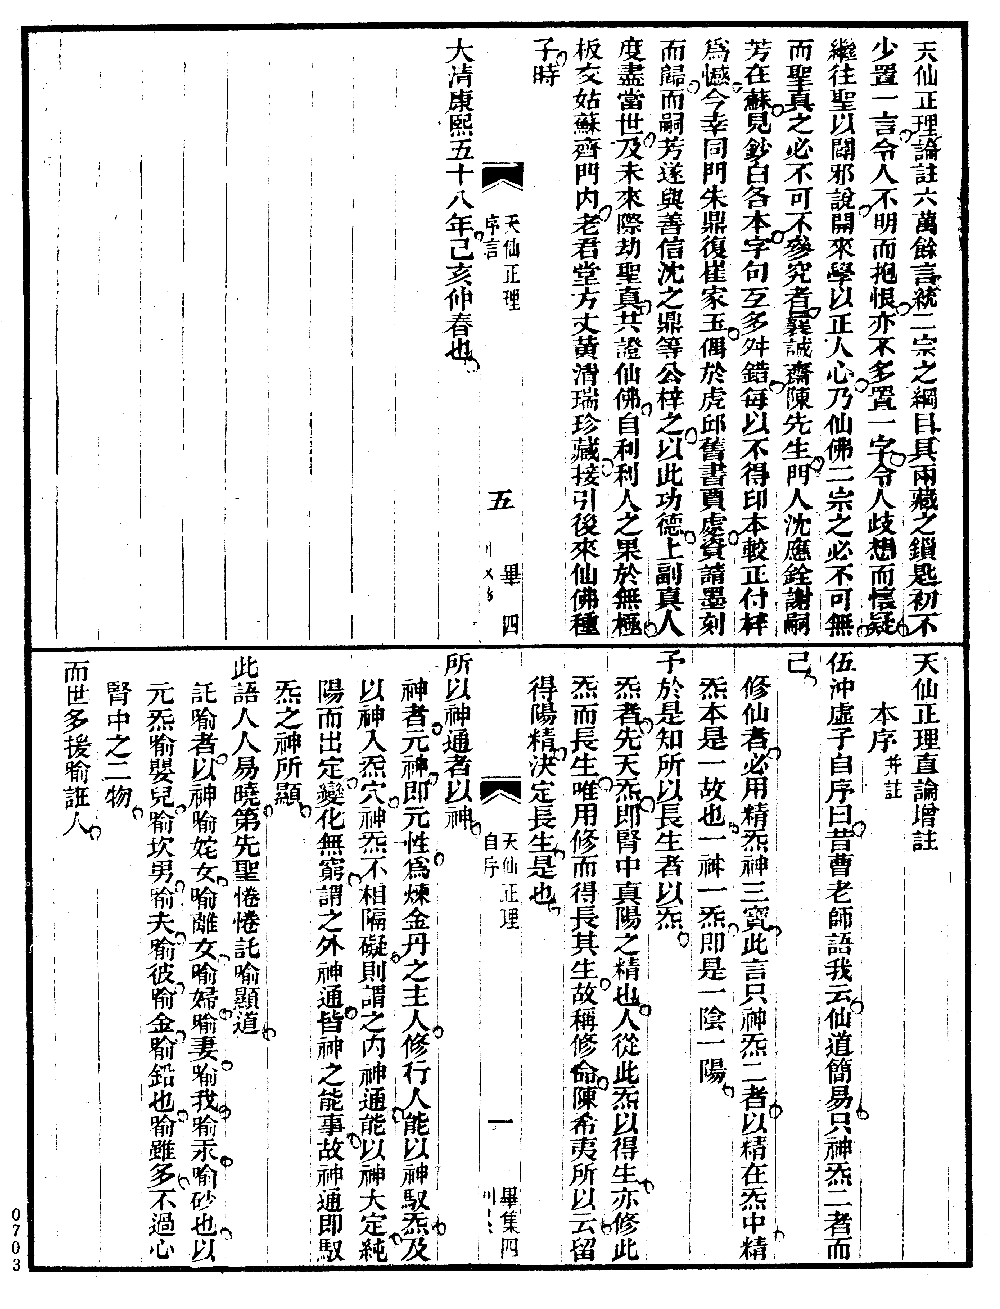 天仙正理論註六萬餘言統二宗之綱目具兩藏之鎖匙初不
少置一言令人不明而抱恨亦不多置一字令人歧想而懷疑
繼往聖以闢邪說開來學以正人心乃仙佛二宗之必不可無
而聖真之必不可不參究者曩誠齋陳先生門人沈應銓謝嗣
芳在蘇見鈔白各本字句互多舛錯每以不得印本較正付梓
為憾今幸同門朱鼎復崔家玉偶於虎邱舊書賈處資請墨刻
而歸而嗣芳遂與善信沈之鼎等公梓之以此功德上副真人
度盡當世及未來際劫聖真共證仙佛自利利人之果於無極
板交姑蘇齊門內老君堂方丈黃清瑞珍藏接引後來仙佛種
子時
大清康熙五十八年己亥仲春也
天仙正理
序言
五
畢四
天仙正理直論增註
本序并註
伍沖虛子自序曰昔曹老師語我云仙道簡易只神炁二者而
已
修仙者必用精炁神三寶此言只神炁二者以精在炁中精
炁本是一故也一神一炁即是一陰一陽
予於是知所以長生者以炁
炁者先天炁即腎中真陽之精也人從此炁以得生亦修此
炁而長生唯用修而得長其生故稱修命陳希夷所以云留
得陽精決定長生是也
天仙正理
自序
一
畢集四
所以神通者以神
神者元神即元性為煉金丹之主人修行人能以神馭炁及
以神入炁穴神炁不相隔礙則謂之內神通能以神大定純
陽而出定變化無窮謂之外神通皆神之能事故神通即馭
炁之神所顯
此語人人易曉第先聖惓惓託喻顯道
託喻者以神喻姹女喻離女喻婦喻妻喻我喻汞喻砂也以
元炁喻嬰兒喻坎男喻夫喻彼喻金喻鉛也喻雖多不過心
腎中之二物
而世多援喻誑人
0703